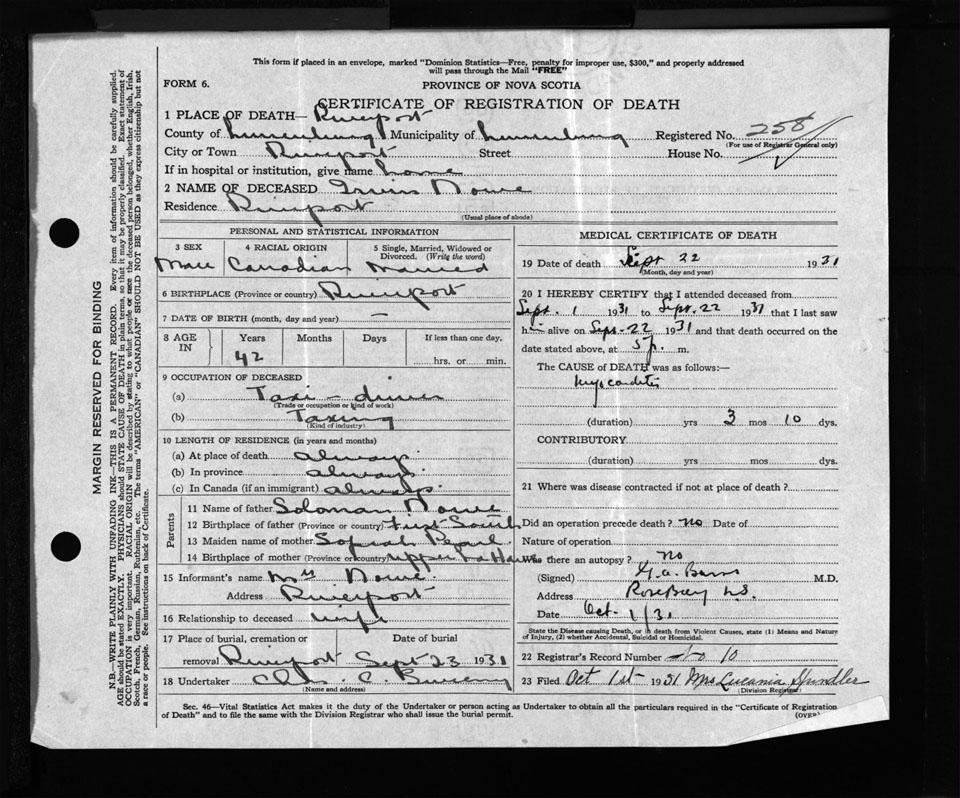 This form if placed in an envelope, marked "Dominion Statistics—Free, penalty for improper use, $300," and properly addressed
will pass through the Mail "FREE"
FORM 6.
PROVINCE OF NOVA SCOTIA
CERTIFICATE OF REGISTRATION OF DEATH
1 PLACE OF DEATH— Riverport
County of Lunenburg Municipality of Lunenburg Registered No. 258
(For use of Registrar General only)
City or Town Riverport Street House No.
If in hospital or institution, give name home
2 NAME OF DECEASED Irvin Nowe
Residence Riverport
(Usual place of abode)
MARGIN RESERVED FOR BINDING
N.B.—WRITE PLAINLY WITH UNFADING INK—THIS IS A PERMANENT RECORD. Every item of information should be carefully supplied.
AGE should be stated EXACTLY. PHYSICIANS should STATE CAUSE OF DEATH in plain terms, so that it may be properly classified. Exact statement of
OCCUPATION is very important. RACIAL ORIGIN will be described by stating to what people or race the deceased person belonged, whether English, Irish,
Scotch, French, German, Russian, Ruthenian, etc. The terms "AMERICAN" or "CANADIAN" SHOULD NOT BE USED as they express citizenship but not
a race or people. See instructions on back of Certificate.
PERSONAL AND STATISTICAL INFORMATION
3 SEX
Male
4 RACIAL ORIGIN
Canadian
5 Single, Married, Widowed or
Divorced. (Write the word)
Married
6 BIRTHPLACE (Province or country) Riverport
7 DATE OF BIRTH (month, day and year) —
8 AGE
IN
Years
42
Months
Days
If less than one day.
hrs. or min.
9 OCCUPATION OF DECEASED
(a) Taxi - driver
(Trade or occupation or kind of work)
(b) Taxing
(Kind of industry)
10 LENGTH OF RESIDENCE (in years and months)
(a) At place of death always
(b) In province always
(c) In Canada (if an immigrant) always
Parents
11 Name of father Soloman Nowe
12 Birthplace of father (Province or country) First South
13 Maiden name of mother Sopiah Pearl
14 Birthplace of mother (Province or country) Upper La Have
15 Informant's name Mrs Nowe
Address Riverport
16 Relationship to deceased wife
17 Place of burial, cremation or
removal Riverport
Date of burial
Sept 23 1931
18 Undertaker Chas. C.
(Name and address)
MEDICAL CERTIFICATE OF DEATH
19 Date of death Sept 22 1931
(Month, day and year)
20 I HEREBY CERTIFY that I attended deceased from
Sept. 1 1931 to Sept. 22 1931 that I last saw
h im alive on Sept. 22 1931 and that death occurred on the
date stated above, at 5 p. m.
The CAUSE OF DEATH was as follows:—
Myocarditis
(duration) yrs 3 mos 10 dys.
CONTRIBUTORY
(duration) yrs mos dys.
21 Where was disease contracted if not at place of death ?
Did an operation precede death ? no Date of
Nature of operation
Was there an autopsy ? no
(Signed) G. A. M.D.
Address Rose Bay N.S.
Date Oct. 1/31
State the Disease causing Death, or in death from Violent Causes, state (1) Means and Nature
of Injury, (2) whether Accidental, Suicidal or Homicidal.
22 Registrar's Record Number No 10
23 Filed Oct 1st 1931 Mrs Lucania Spindler
(Division Registrar)
Sec. 46—Vital Statistics Act makes it the duty of the Undertaker or person acting as Undertaker to obtain all the particulars required in the "Certificate of Registration
of Death" and to file the same with the Division Registrar who shall issue the burial permit.
(OVER)